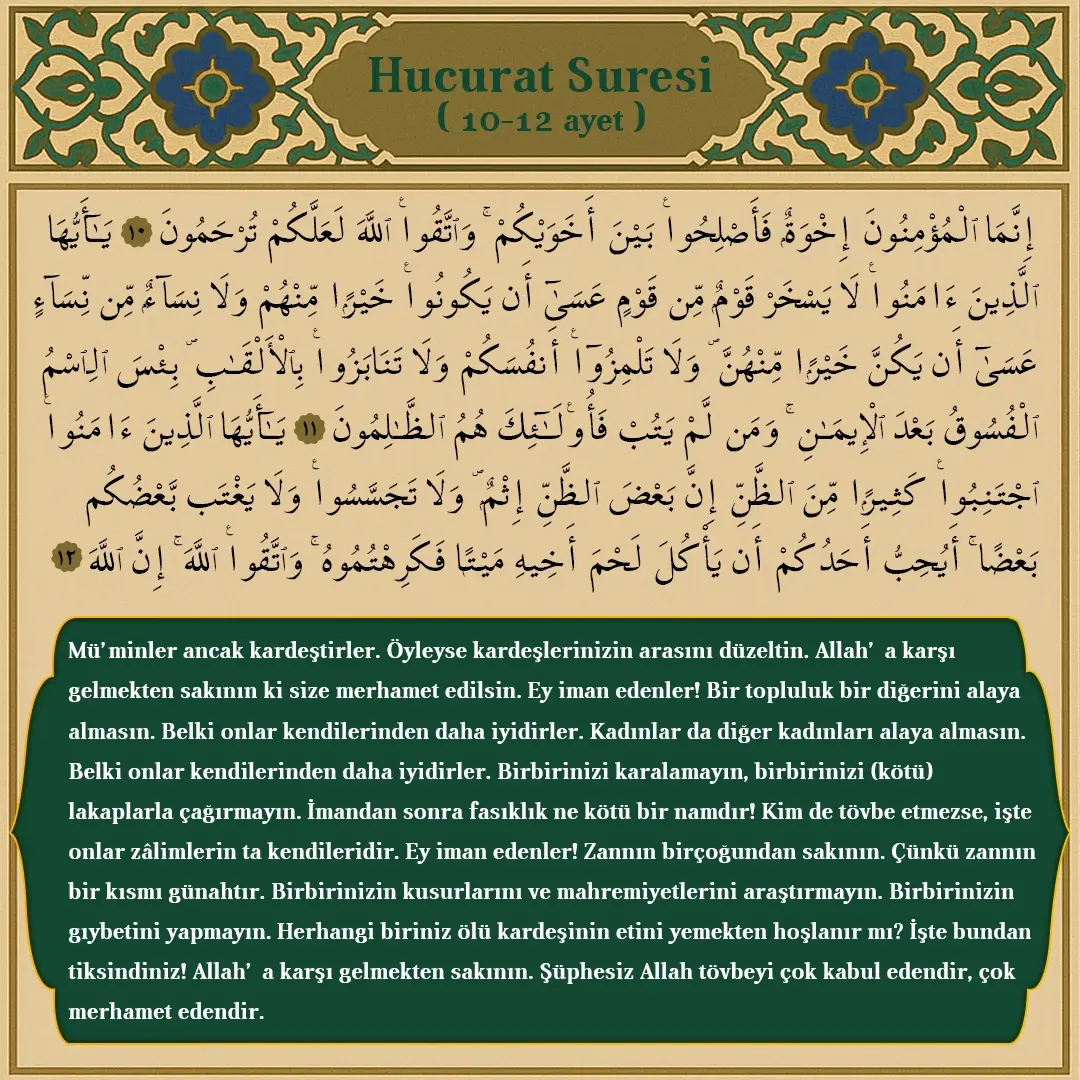 Hucurat Suresi
( 10-12 ayet )
إِنَّمَا ٱلْمُؤْمِنُونَ إِخْوَةٌ فَأَصْلِحُوا۟ بَيْنَ أَخَوَيْكُمْ ۚ وَٱتَّقُوا۟ ٱللَّهَ لَعَلَّكُمْ تُرْحَمُونَ ١٠ يَـٰٓأَيُّهَا
ٱلَّذِينَ ءَامَنُوا۟ لَا يَسْخَرْ قَوْمٌ مِّن قَوْمٍ عَسَىٰٓ أَن يَكُونُوا۟ خَيْرًا مِّنْهُمْ وَلَا نِسَآءٌ مِّن نِّسَآءٍ
عَسَىٰٓ أَن يَكُنَّ خَيْرًا مِّنْهُنَّ ۖ وَلَا تَلْمِزُوٓا۟ أَنفُسَكُمْ وَلَا تَنَابَزُوا۟ بِٱلْأَلْقَـٰبِ ۖ بِئْسَ ٱلِٱسْمُ
ٱلْفُسُوقُ بَعْدَ ٱلْإِيمَـٰنِ ۚ وَمَن لَّمْ يَتُبْ فَأُو۟لَـٰٓئِكَ هُمُ ٱلظَّـٰلِمُونَ ١١ يَـٰٓأَيُّهَا ٱلَّذِينَ ءَامَنُوا۟
ٱجْتَنِبُوا۟ كَثِيرًا مِّنَ ٱلظَّنِّ إِنَّ بَعْضَ ٱلظَّنِّ إِثْمٌ ۖ وَلَا تَجَسَّسُوا۟ وَلَا يَغْتَب بَّعْضُكُم
بَعْضًا ۚ أَيُحِبُّ أَحَدُكُمْ أَن يَأْكُلَ لَحْمَ أَخِيهِ مَيْتًا فَكَرِهْتُمُوهُ ۚ وَٱتَّقُوا۟ ٱللَّهَ ۚ إِنَّ ٱللَّهَ ١٢
Mü'minler ancak kardeştirler. Öyleyse kardeşlerinizin arasını düzeltin. Allah' a karşı
gelmekten sakının ki size merhamet edilsin. Ey iman edenler! Bir topluluk bir diğerini alaya
almasın. Belki onlar kendilerinden daha iyidirler. Kadınlar da diğer kadınları alaya almasın.
Belki onlar kendilerinden daha iyidirler. Birbirinizi karalamayın, birbirinizi (kötü)
lakaplarla çağırmayın. İmandan sonra fasıklık ne kötü bir namdır! Kim de tövbe etmezse, işte
onlar zâlimlerin ta kendileridir. Ey iman edenler! Zannın birçoğundan sakının. Çünkü zannın
bir kısmı günahtır. Birbirinizin kusurlarını ve mahremiyetlerini araştırmayın. Birbirinizin
gıybetini yapmayın. Herhangi biriniz ölü kardeşinin etini yemekten hoşlanır mı? İşte bundan
tiksindiniz! Allah' a karşı gelmekten sakının. Şüphesiz Allah tövbeyi çok kabul edendir, çok
merhamet edendir.